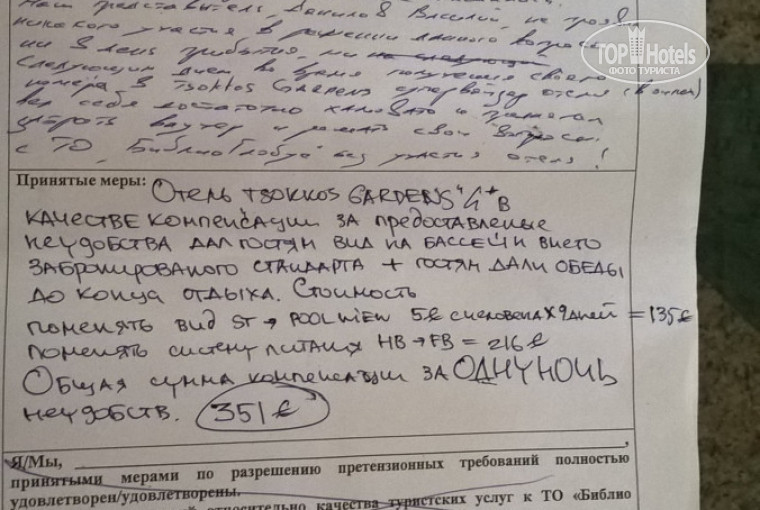 Наш представитель, Данилов Василий, не проявил
никакого участия в решении данного вопроса
ни в день прибытия, ни на следующий
следующим днем во время получения своего
номера в TSOKKOS GARDENS супервайзер отеля
вел себя достаточно
ваучер и решать свои вопросы
с ТО "Библио Глобус" без участия отеля!
Принятые меры: Отель TSOKKOS GARDENS 4* В
КАЧЕСТВЕ КОМПЕНСАЦИИ ЗА ПРЕДОСТАВЛЕНЫЕ
НЕУДОБСТВА ДАЛ ГОСТЯМ ВИД НА БАССЕЙН ВМЕСТО
ЗАБРОНИРОВАНОГО СТАНДАРТА + ГОСТЯМ ДАЛИ ОБЕДЫ
ДО КОНЦА ОТДЫХА. СТОИМОСТЬ
ПОМЕНЯТЬ ВИД ST → POOL VIEW 5€ С ЧЕЛОВЕКА Х 9 ДНЕЙ = 135€
ПОМЕНЯТЬ СИСТЕМУ ПИТАНИЯ HB → FB = 216€
ОБЩАЯ СУММА КОМПЕНСАЦИИ ЗА ОДНУ НОЧЬ
НЕУДОБСТВ. 351€
Я/Мы, ,
принятыми мерами по разрешению претензионных требований полностью
удовлетворен/удовлетворены.
относительно качества туристских услуг к ТО «Библио
TOP Hotels
ФОТО ТУРИСТА